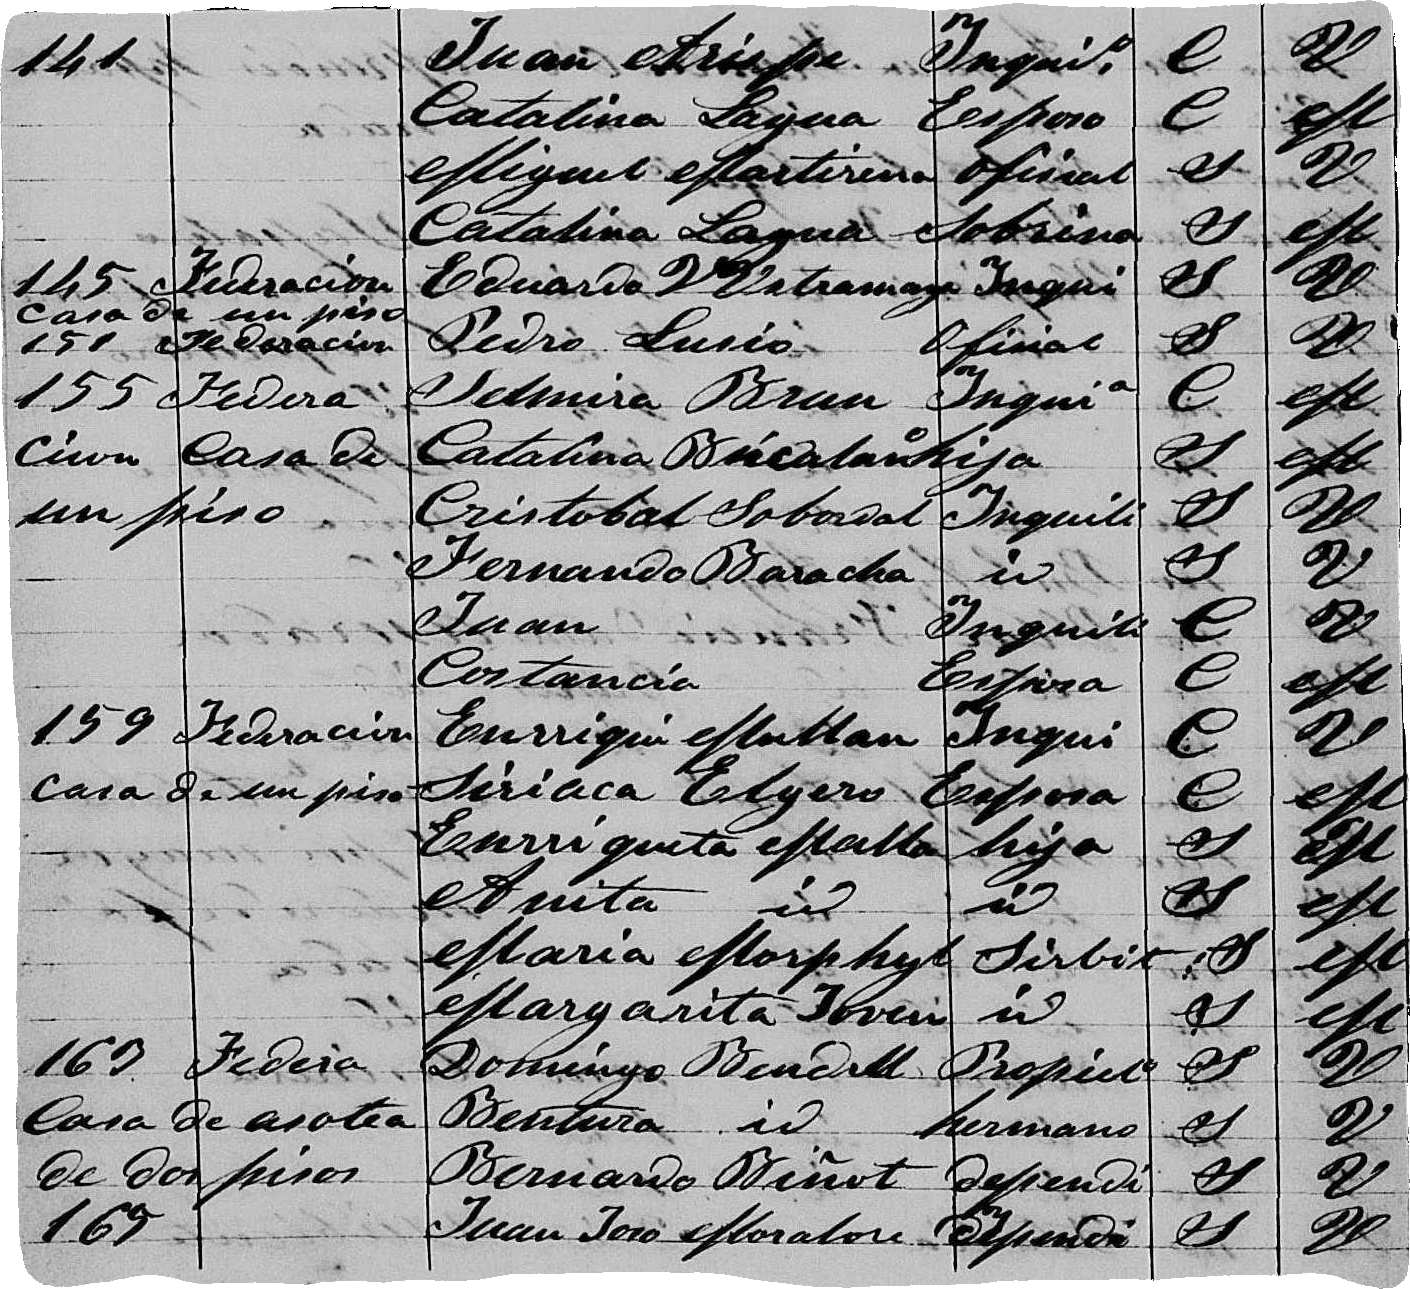 141 Juan Arispe Inqui.º C V
Catalina Lagua Esposa C M
Miguel Martirena Oficial S V
Catalina Lagua Sobrina S M
145 Federacion Eduardo Inqui S V
casa de un piso
151 Federacion Pedro Lusio Oficial S V
155 Federa Selmira Brun Inquiª C M
cion Casa de Catalina hija S M
un piso Cristobal Sobordal Inquili S V
Fernando Baracha id S V
Juan Inquili C V
Costancia Esposa C M
159 Federacion Enrriqui Inqui C V
casa de un piso Siriaca Elgero Esposa C M
Enrriqueta Malla hija S M
Anita id id S M
Maria Morphyl Sirbit S M
Margarita Joven id S M
163 Federa Domingo Bendrell Propietº S V
Casa de asotea Bentura id hermano S V
de dos pisos Bernardo Biñot dependi S V
165 Juan Jose Moratore dependi S V